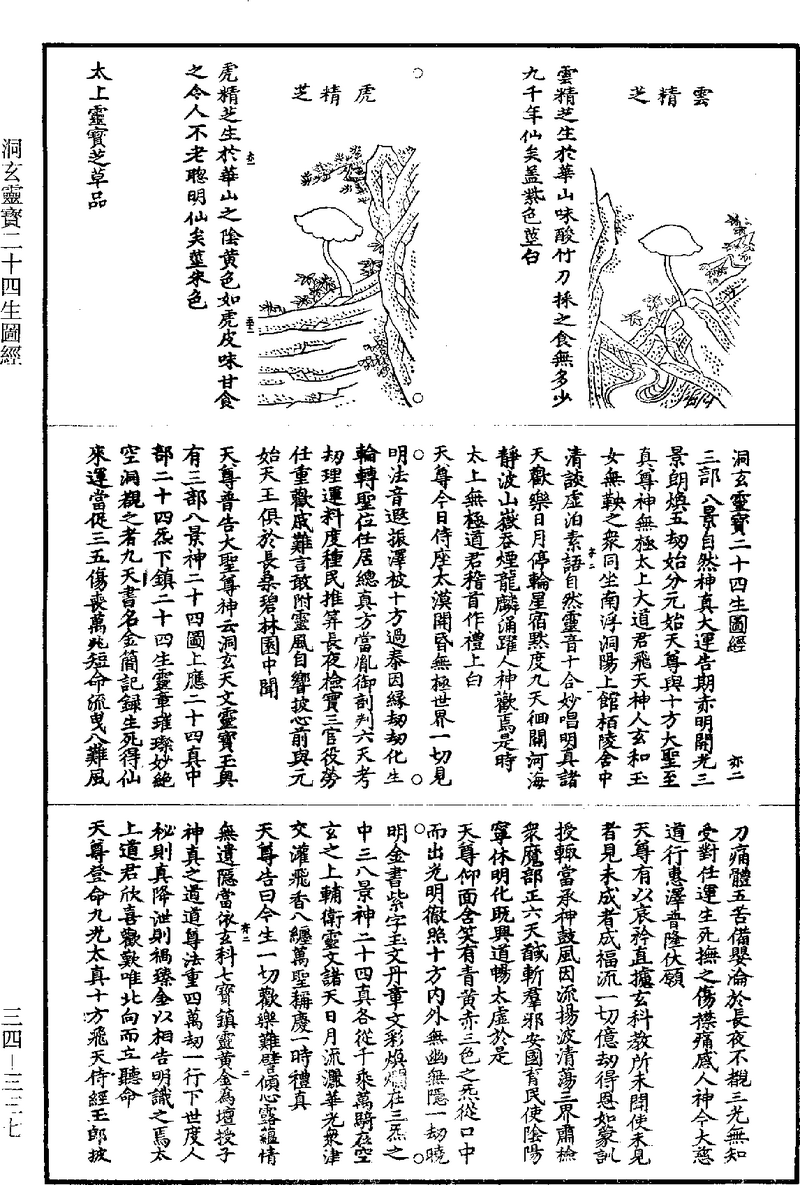 雲精芝
雲精芝生於華山味酸竹刀採之食無多少
九千年仙矣蓋紫色莖白
虎精芝
虎精芝生於華山之陰黃色如虎皮味甘食
之令人不老聰明仙矣莖朱色
太上靈寶芝草品
洞玄靈寶二十四生圖經
三部八景自然神真大運告期赤明開光三
景朗煥五劫始分元始天尊與十方大聖至
真尊神無極太上大道君飛天神人玄和玉
女無鞅之衆同坐南浮洞陽上館栢陵舍中
清談虛泊素語自然靈音十合妙唱明真諸
天歡樂日月停輪星宿默度九天徊關河海
靜波山嶽吞煙龍麟涌躍人神歡焉是時
太上無極道君稽首作禮上白
天尊今日侍座太漠開昏無極世界一切見
明法音遐振澤被十方過泰因緣劫劫化生
輪轉聖位任居總真方當胤御剖判六天考
劫理運料度種民推筭長夜檢實三官役勞
任重歡戚難言敢附靈風自響披心前與元
始天王俱於長桑碧林園中聞
天尊普告大聖尊神云洞玄天文靈寶玉奧
有三部八景神二十四圖上應二十四真中
部二十四炁下鎮二十四生靈章璀璨妙絕
空洞覩之者九天書名金簡記録生死得仙
來運當促三五傷喪萬兆短命流曳八難風
刀痛體五苦備嬰淪於長夜不覩三光無知
受對任運生死撫之傷襟痛慼人神今大慈
道行惠澤普隆伏願
天尊有以哀矜直攄玄科教所未聞使未見
者見未成者成福流一切億劫得恩如蒙訓
授輙當承神鼓風因流揚波清蕩三界肅檢
衆魔部正六天馘斬羣邪安國育民使陰陽
寧休明化既興道暢太虛於是
天尊仰面含笑有青黃赤三色之炁從口中
而出光明徹照十方内外無幽無隱一劫曉
明金書紫字玉文丹章文彩煥爛在三炁之
中三八景神二十四真各從千乘萬騎在空
玄之上輔衛靈文諸天日月流灑華光衆津
交灌飛香八纏萬聖稱慶一時禮真
天尊告曰今生一切歡樂難譬傾心露蘊情
無遺隱當依玄科七寶鎮靈黃金為壇授子
神真之道道尊法重四萬劫一行下世度人
祕則真降泄則禍臻金以相告明識之焉太
上道君欣喜歡歎唯北向而立聽命
天尊登命九光太真十方飛天侍經玉郎披
洞玄靈寶二十四生圖經
三四—三三七